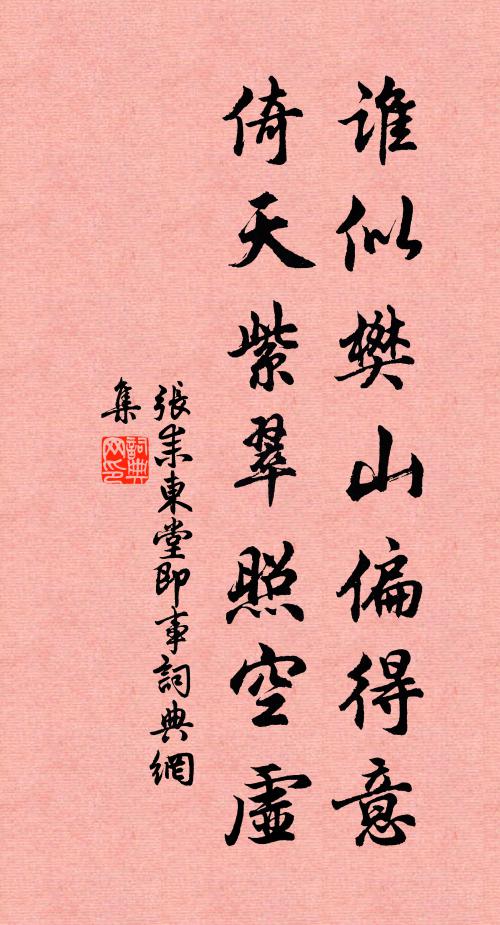 誰似樊山偏得意
倚天紫翠照空虛
張耒東堂即事詞典網
集
詞典
网印